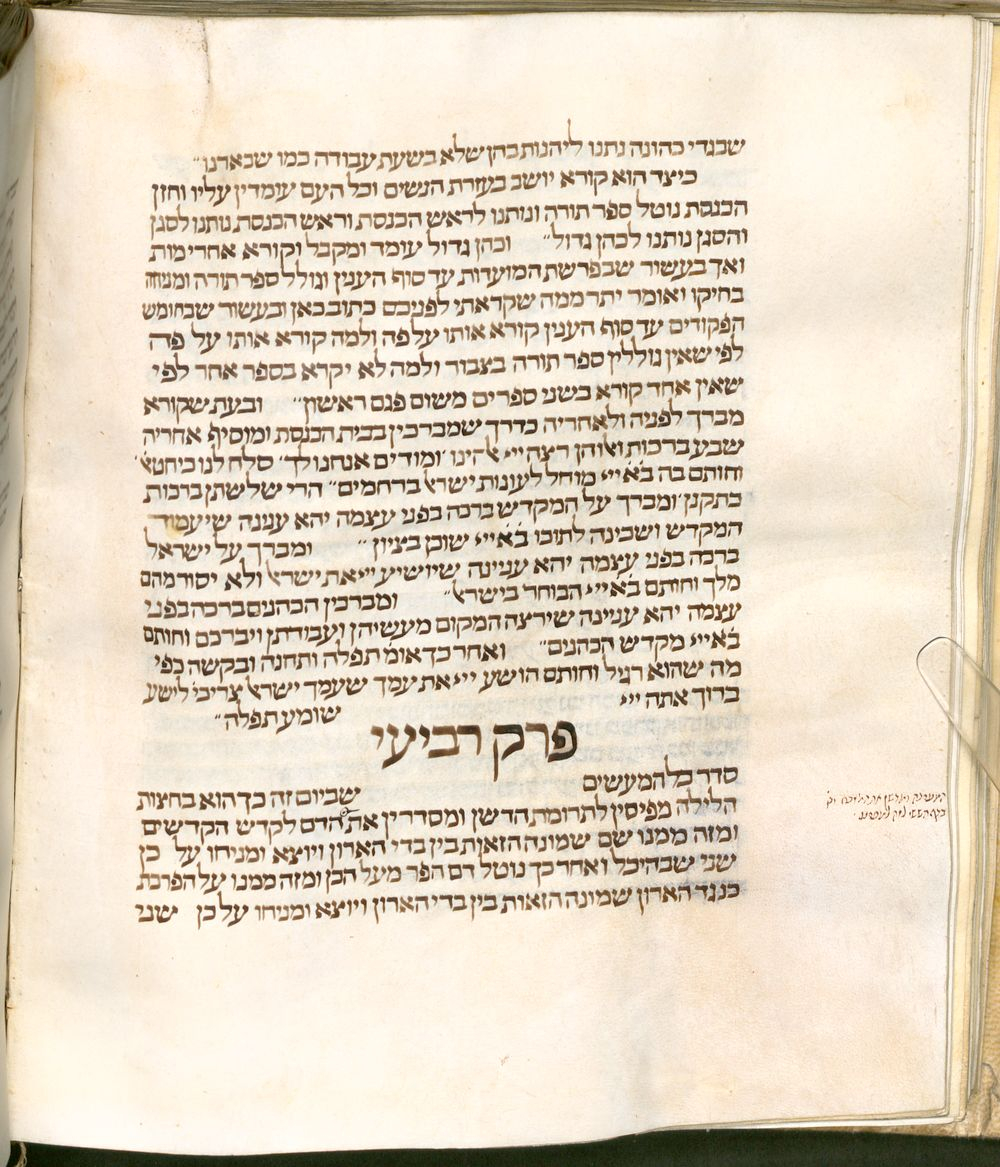 שבגדי כהונה נתנו ליהנות בהן שלא בשעת עבודה כמו שבארנו״
כיצד הוא קורא יושב בעזרת הנשים וכל העם עומדין עליו וחזן
הכנסת נוטל ספר תורה ונותנו לראש הכנסת וראש הכנסת נותנו לסגן
והסגן נותנו לכהן גדול״ וכהן גדול עומד ומקבל וקורא אחרי מות
ואך בעשור שבפרשת המועדות עד סוף הענין וגולל ספר תורה ומניחה
בחיקו ואומר יתר ממה שקראתי לפניכם כתוב כאן ובעשור שבחומש
הפקודים עד סוף הענין קורא אותו על פה ולמה קורא אותו על פה
לפי שאין גוללין ספר תורה בצבור ולמה לא יקרא בספר אחר לפי
שאין אחד קורא בשני ספרים משום פגם ראשון״ ובעת שקורא
מברך לפניה ולאחריה כדרך שמברכין בבית הכנסת ומוסיף אחריה
שבע ברכות ואלו הן רצה ייי אלהינו ׳ומודים אנחנו לך׳ סלח לנו כי חטא׳
וחותם בה בא״י מוחל לעונות ישראל ברחמים״ הרי שלש מהן ברכות
כתקנן׳ ומברך על המקדש ברכה בפני עצמה יהא ענינה שיעמוד
המקדש ושכינה לתוכו בא״י שוכן בציון״ ומברך על ישראל
ברכה בפני עצמה יהא ענינה שיושיע ייי את ישראל ולא יסור מהם
מלך וחותם בא״י הבוחר בישראל״ ומברך על הכהנים ברכה בפני
עצמה יהא ענינה שירצה המקום מעשיהן ועבודתן ויברכם וחותם
בא״י מקדש הכהנים״ ואחר כך אומ׳ תפלה ותחנה ובקשה כפי
מה שהוא רגיל וחותם הושע ייי את עמך שעמך ישראל צריכי׳ ליושע
ברוך אתה ייי שומע תפלה״
פרק רביעי
סדר כל המעשים שביום זה כך הוא בחצות
הלילה מפיסין לתרומת הדשן ומסדרין את הדם לקדש הקדשים
ומזה ממנו שם שמונה הזאות בין בדי הארון ויוצא ומניחו על כן
שני שבהיכל ואחר כך נוטל דם הפר מעל הכן ומזה ממנו על הפרכת
כנגד הארון שמונה הזאות בין בדי הארון ויוצא ומניחו על כן שני